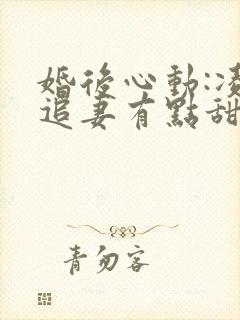 婚後心動:凌
追妻有點甜
青勿客